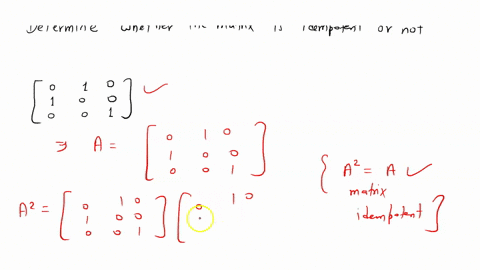 Determine whether the matrix is idempotent or not
[ 0 1 0
1 0 0
0 0 1 ] ✓
⇒ A = [ 0 1 0
1 0 0
0 0 1 ]
{ A² = A ✓
matrix
idempotent }
A² = [ 0 1 0
1 0 0
0 0 1 ] [ 0 1 0